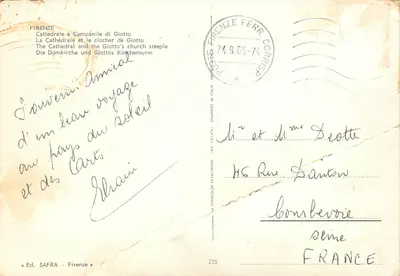 FIRENZE
Cattedrale e Campanile di Giotto
La Cathédrale et le clocher de Giotto
The Cathedral and the Giotto's church steeple
Die Domkirche und Giottos Kirchenturm
POSTE FIRENZE FERR. CORRISP.
24.9.65-24
Souvenir Amical
d'un beau voyage
au pays du soleil
et des Carts
Mr et Mme Deotte
46 Rue Danton
Courbevoie
Seine
FRANCE
« Ed. SAFRA - Firenze »
235